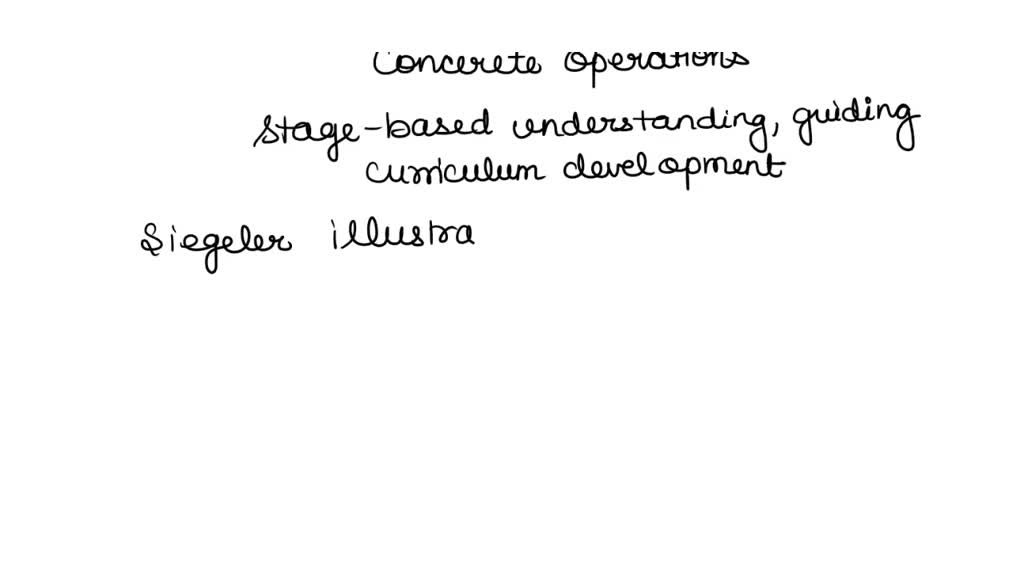 Concrete operations
stage-based understanding, guiding
curriculum development
Siegeler illustra